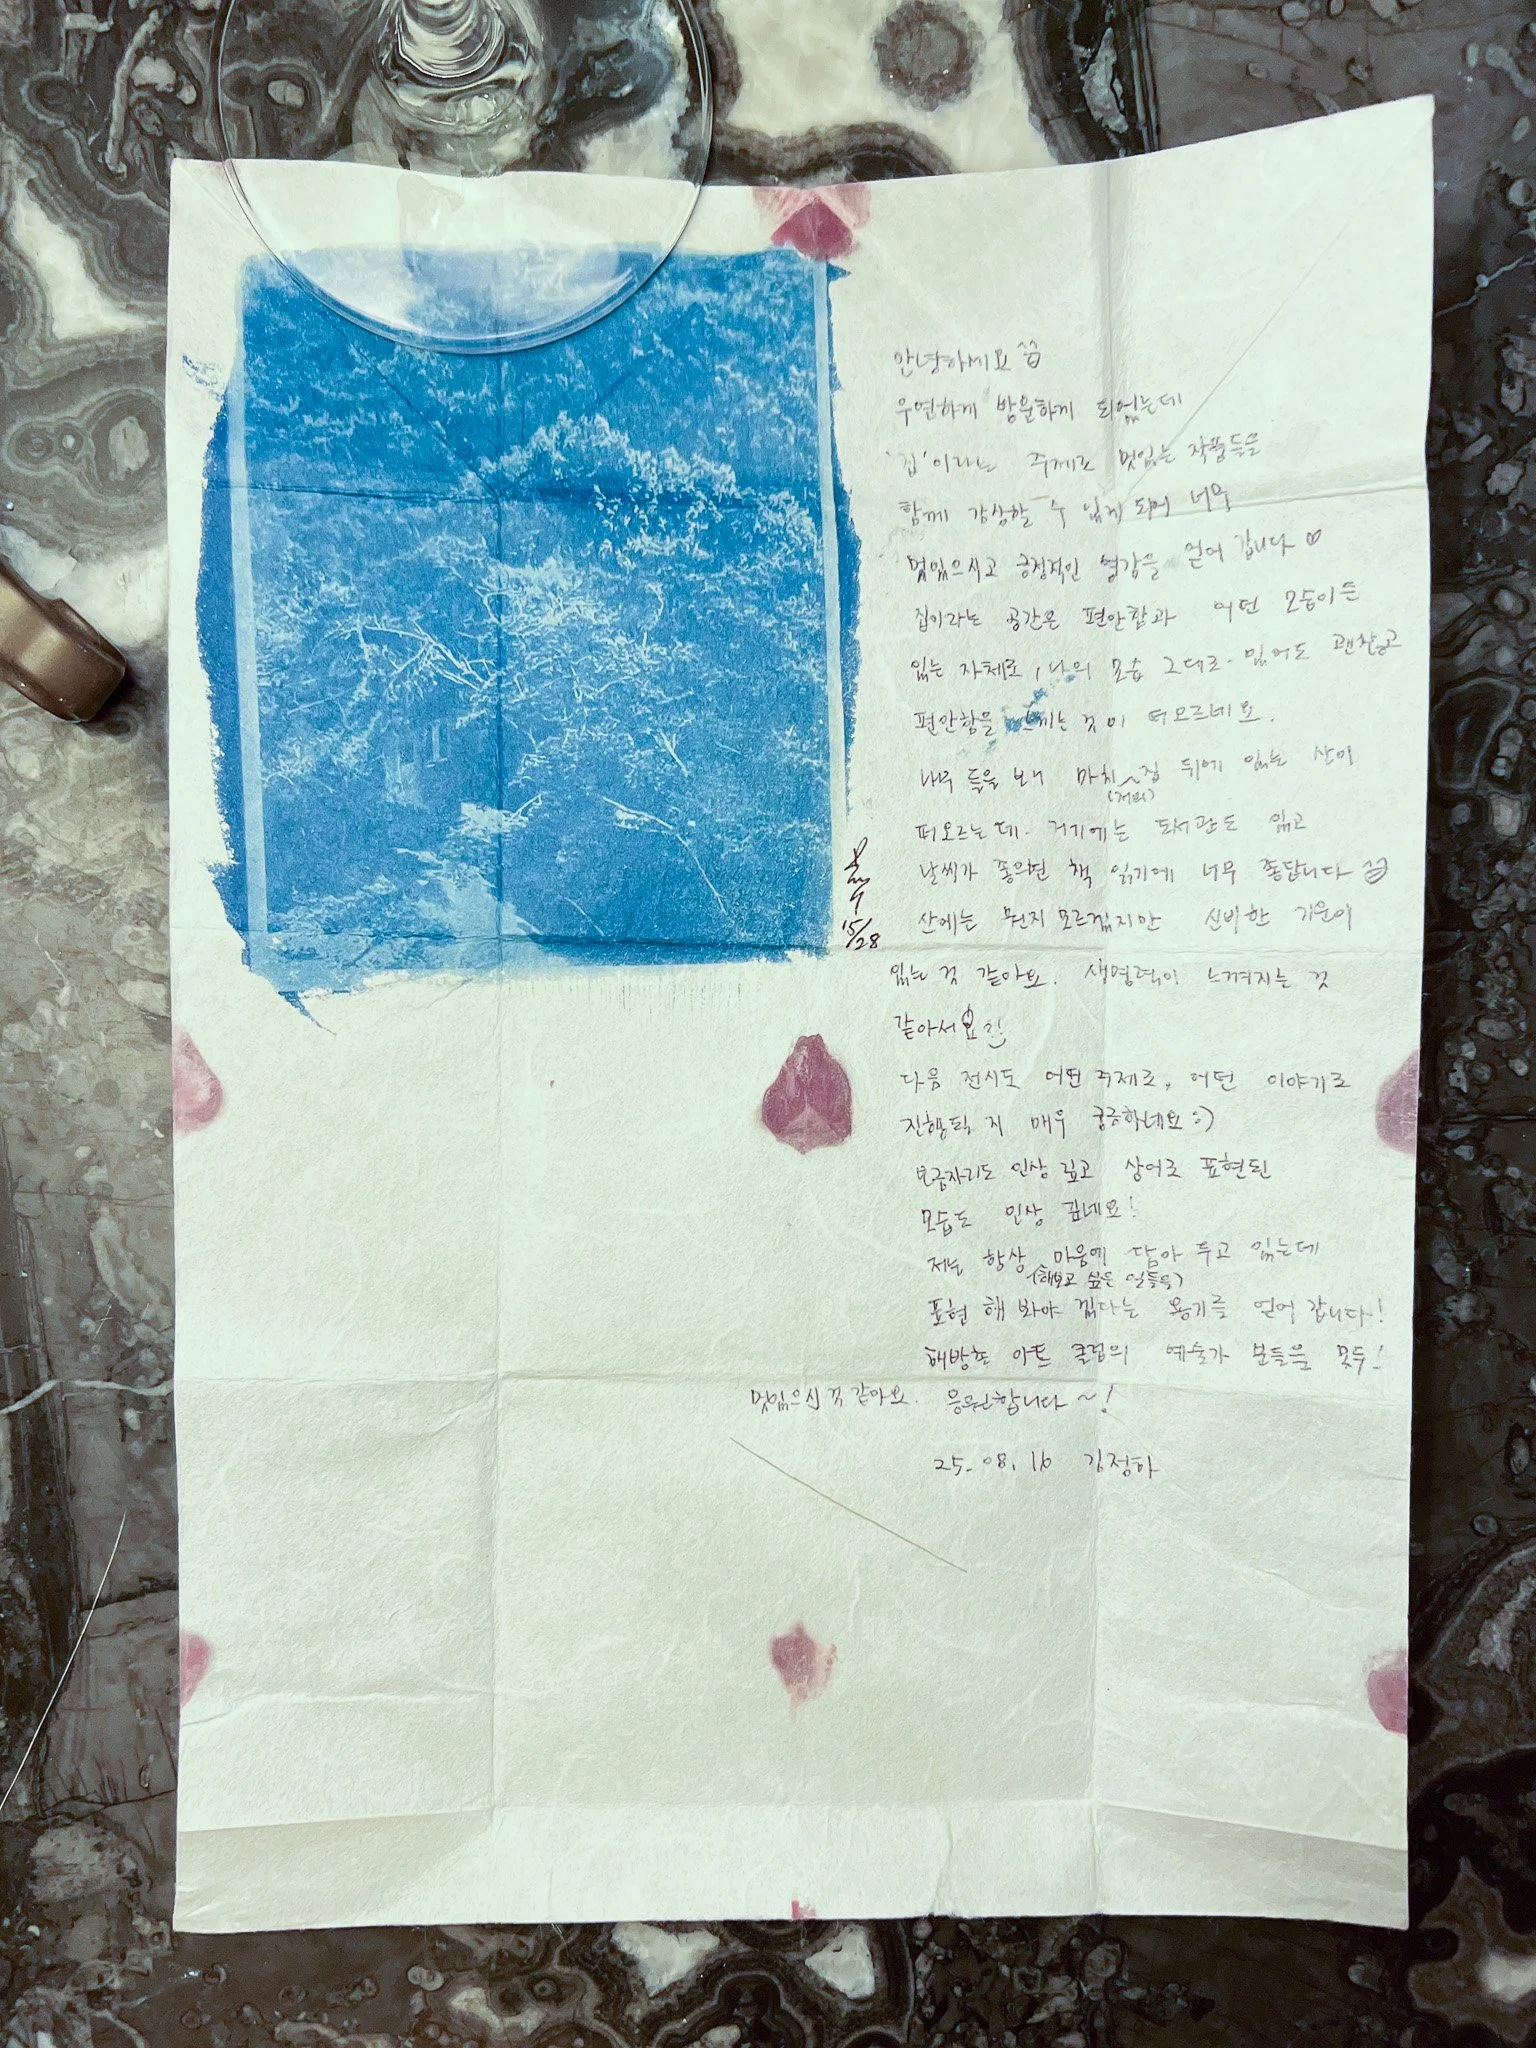 안녕하세요
우연하게 방문하게 되었는데
'집'이라는 주제로 멋있는 작품들을
함께 감상할 수 있게 되어 너무
멋있으시고 긍정적인 영감을 얻어 갑니다 ♡
집이라는 공간은 편안함과 어떤 모습이든
있는 자체로, 나의 모습 그대로 있어도 괜찮고
편안함을 느끼는 것이 떠오르네요.
나무들을 보니 마치 집 뒤에 있는 산이
(저희)
떠오르는데. 거기에는 도서관도 있고
날씨가 좋으면 책 읽기에 너무 좋답니다
15/28
산에는 뭔지 모르겠지만 신비한 기운이
있는 것 같아요. 생명력이 느껴지는 것
같아서요
다음 전시도 어떤 주제로, 어떤 이야기로
진행될 지 매우 궁금하네요 :)
보금자리도 인상 깊고 상어로 표현된
모습도 인상 깊네요!
저는 항상 마음에 담아 두고 있는데
(해보고 싶은 일들을)
표현 해 봐야 겠다는 용기를 얻어 갑니다!
해방촌 아트 클럽의 예술가 분들은 모두!
멋있으신 것 같아요. 응원합니다~!
25. 08. 16 김정하